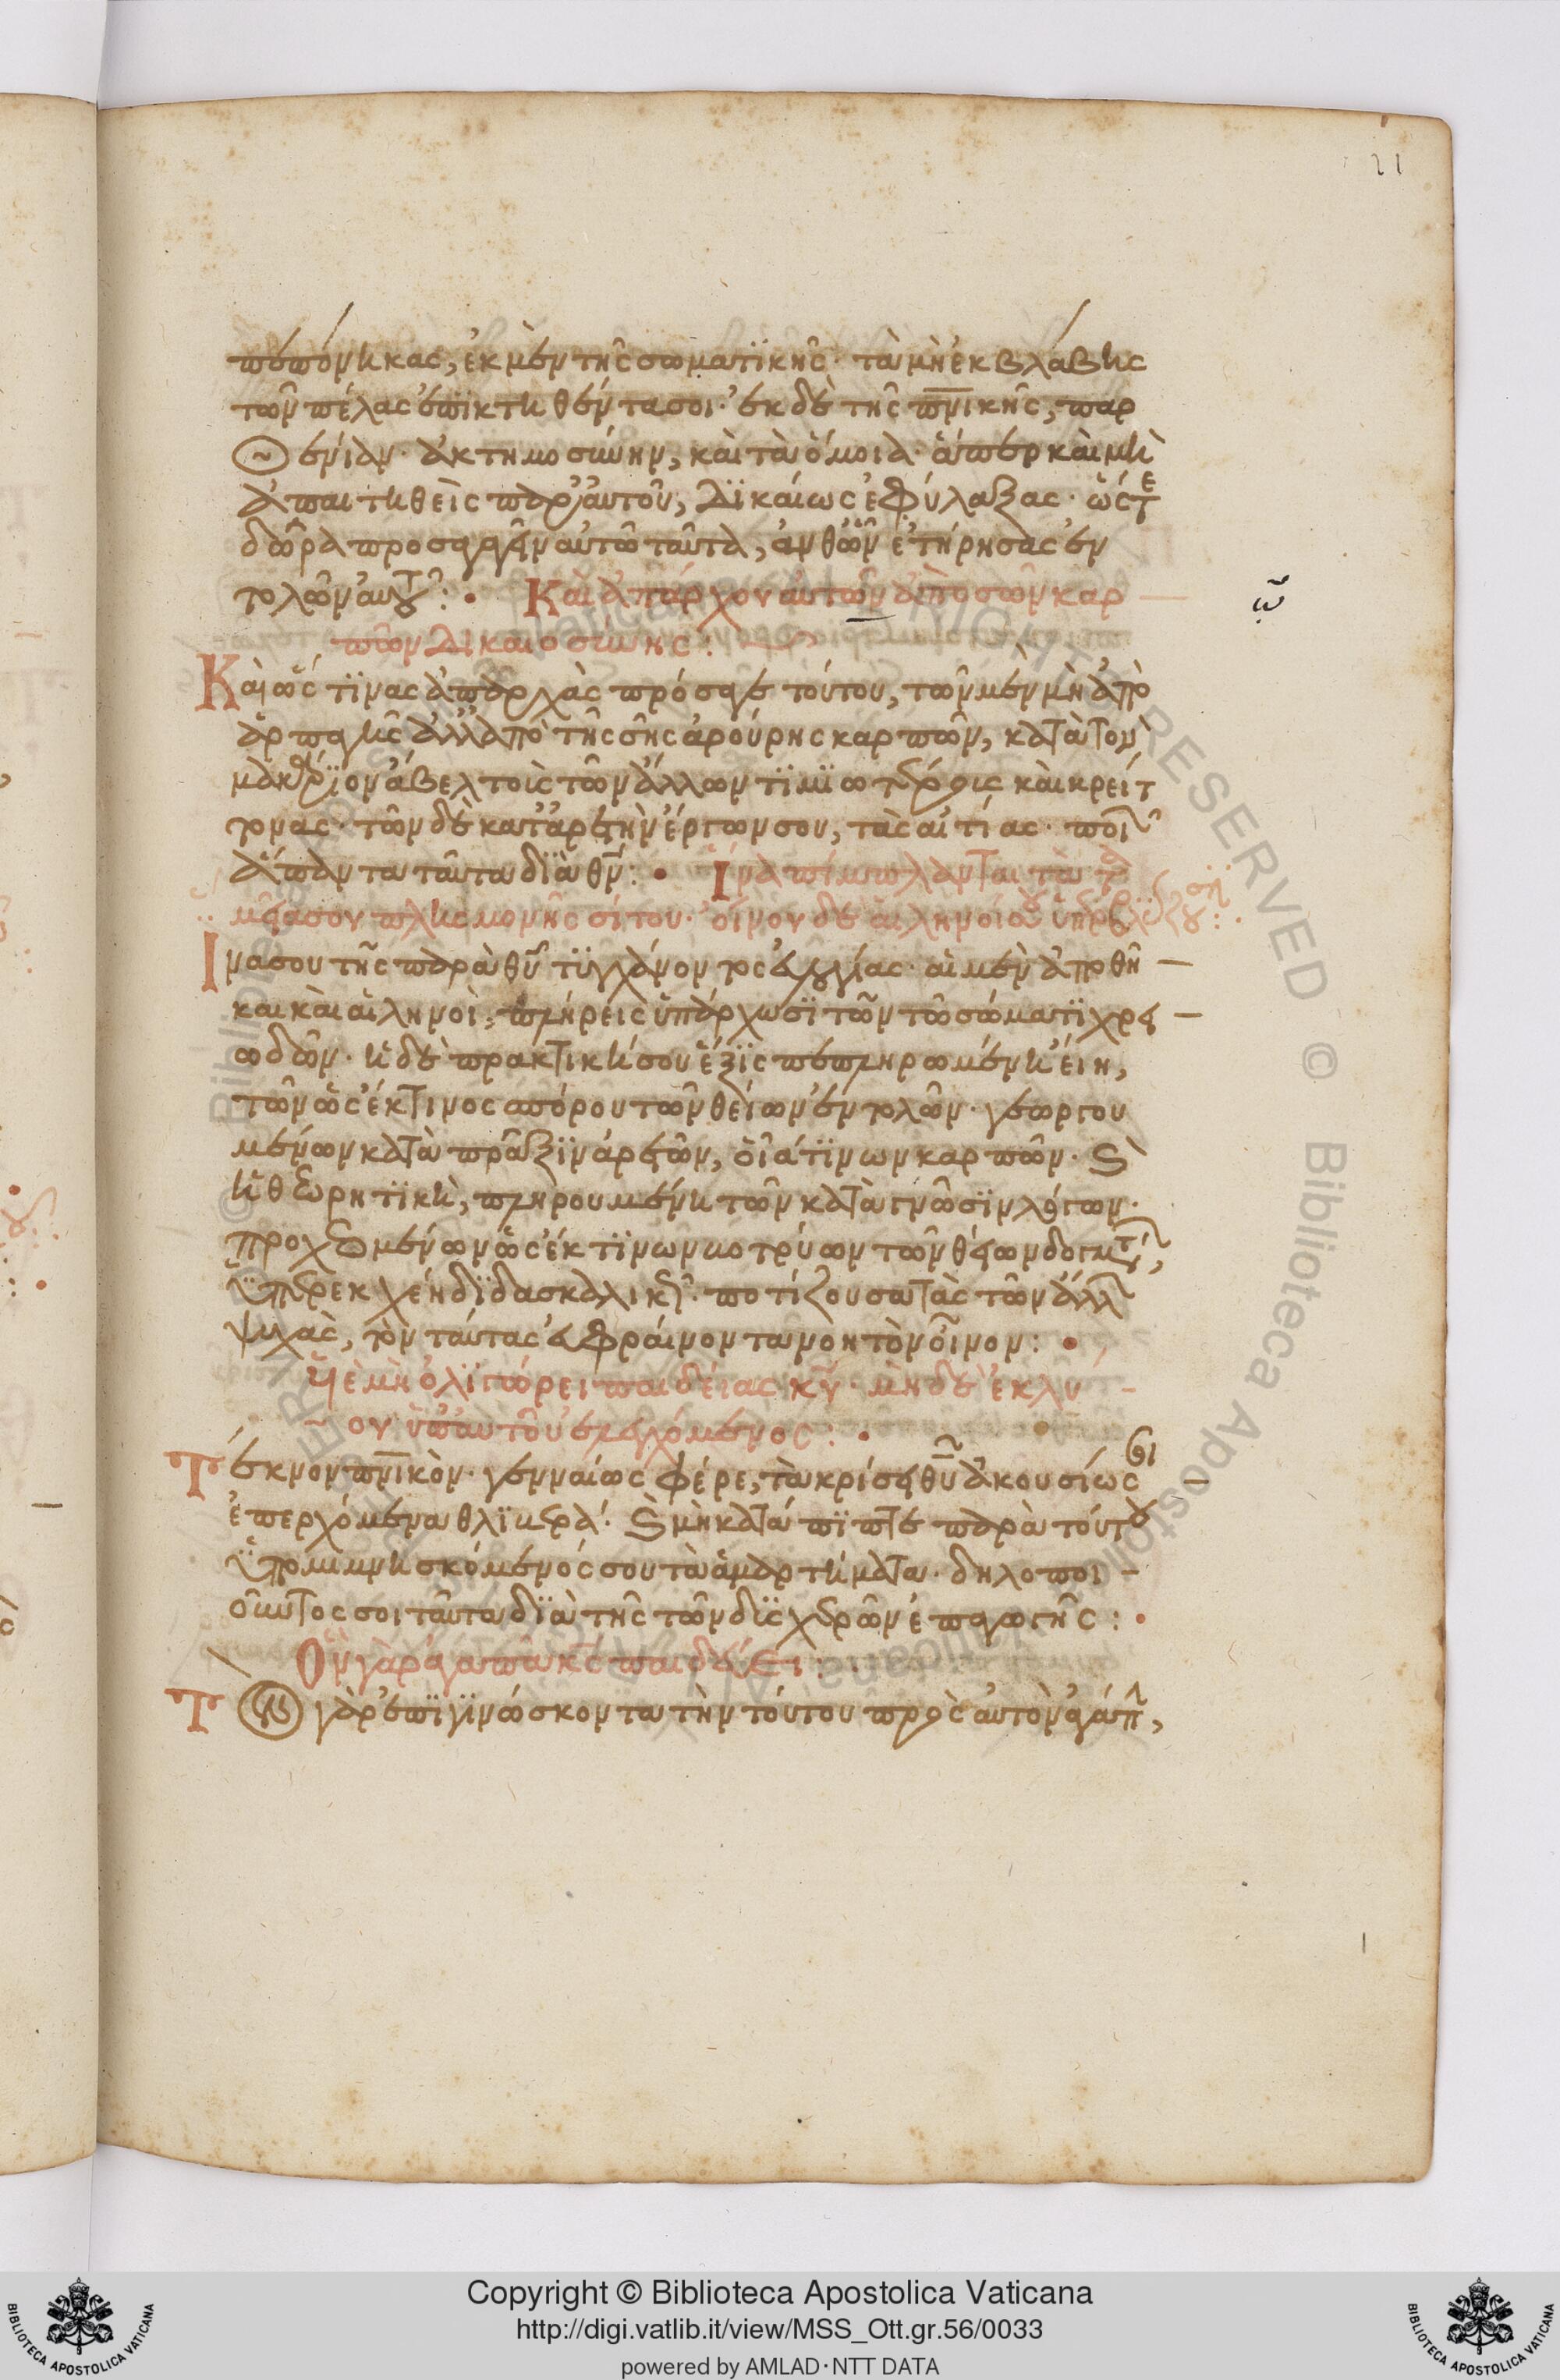 21
πεπόνηκας, ἐκ μὲν τῆς σωματϊκῆς· τὰ μὴ ἐκ βλάβης
τῶν πέλας ἐπϊκτηθέντα σοι· ἐκ δὲ τῆς πνικῆς, παρ
θενίαν· ἀκτημοσύνην, καὶ τὰ ὅμοια· ἅπερ καὶ μὴ
ἀπαιτηθεὶς παρ' αὐτοῦ, δϊκαίως ἐφύλαξας· ὥστε
δῶρα προσαγαγεῖν αὐτῶ ταῦτα, ἀνθ' ὧν ἐτήρησας ἐν
τολῶν αὐτοῦ:
Καὶ ἀπάρχου αὐτῶν ἀπὸ σῶν καρ
πῶν δικαιοσύνης:
ω
Καὶ ὥς τϊνας ἀπαρχὰς πρόσαγε τούτου, τῶν μὲν μὴ ἀπὸ
ἁρπαγῆς ἀλλ' ἀπὸ τῆς σῆς ἀρούρης καρπῶν, κατὰ τὸν
μακάριον ἄβελ τοὺς τῶν ἄλλων τϊμϊωτέρους καὶ κρείτ
τονας· τῶν δὲ κατ' ἀρετὴν ἔργων σου, τὰς αἰτίας· ποιῶν
ἅπαντα ταῦτα δϊὰ θν:
Ἵνα πίμπλανται τὰ τα
μεῖά σου πλησμονῆς σίτου· οἴνου δὲ αἱ ληνοί σου ὑπερβλύζουσιν:
Ἵνα σου τῆς παρὰ θυ τϋγχάνοντος εὐλογίας· αἱ μὲν ἀποθῆ
και καὶ αἱ ληνοὶ, πλήρεις ὑπάρχωσϊ τῶν τῶ σώματϊ χρει
ωδῶν· ἡ δὲ πρακτική σου ἕξϊς πεπληρωμένη εἴη,
τῶν ὡς ἔκ τινος σπόρου τῶν θείων ἐντολῶν· γεωργου
μένων κατὰ πρᾶξϊν ἀρετῶν, οἷά τϊνων καρπῶν· καὶ
ἡ θεωρητϊκὴ, πληρουμένη τῶν κατὰ γνῶσϊν λόγων·
προχεομένων ὡς ἔκ τϊνων βοτρύων τῶν θείων δογμάτων,
ὑπερεκχεῖν δϊδασκαλικῶς· ποτίζουσα τὰς τῶν ἄλλων
ψυχὰς, τὸν ταύτας εὐφραίνοντα νοητὸν οἶνον:
Υἱὲ μὴ ὀλϊγώρει παιδείας κυ· μὴ δὲ ἐκλύ
ου ὑπ' αὐτοῦ ἐλεγχόμενος:
Τέκνον πνικὸν· γενναίως φέρε, τὰ κρίσει θυ ἀκουσίως σοι
ἐπερχόμενα θλϊβερά· καὶ μὴ κατάπϊπτε παρὰ τούτου
ὑπομιμνησκόμενός σου τὰ ἁμαρτήματα· δηλοποι
οῦντος σοι ταῦτα δϊὰ τῆς τῶν δϋσχερῶν ἐπαγωγῆς:
Ὃν γὰρ ἀγαπᾶ κς παιδεύει:
Τὸν γὰρ ἐπϊγϊνώσκοντα τὴν τούτου πρὸς αὐτὸν ἀγάπην,
© Biblioteca Apostolica Vaticana. ALL RIGHTS RESERVED
Copyright © Biblioteca Apostolica Vaticana
http://digi.vatlib.it/view/MSS_Ott.gr.56/0033
powered by AMLAD·NTT DATA
BIBLIOTECA APOSTOLICA VATICANA
BIBLIOTECA APOSTOLICA VATICANA